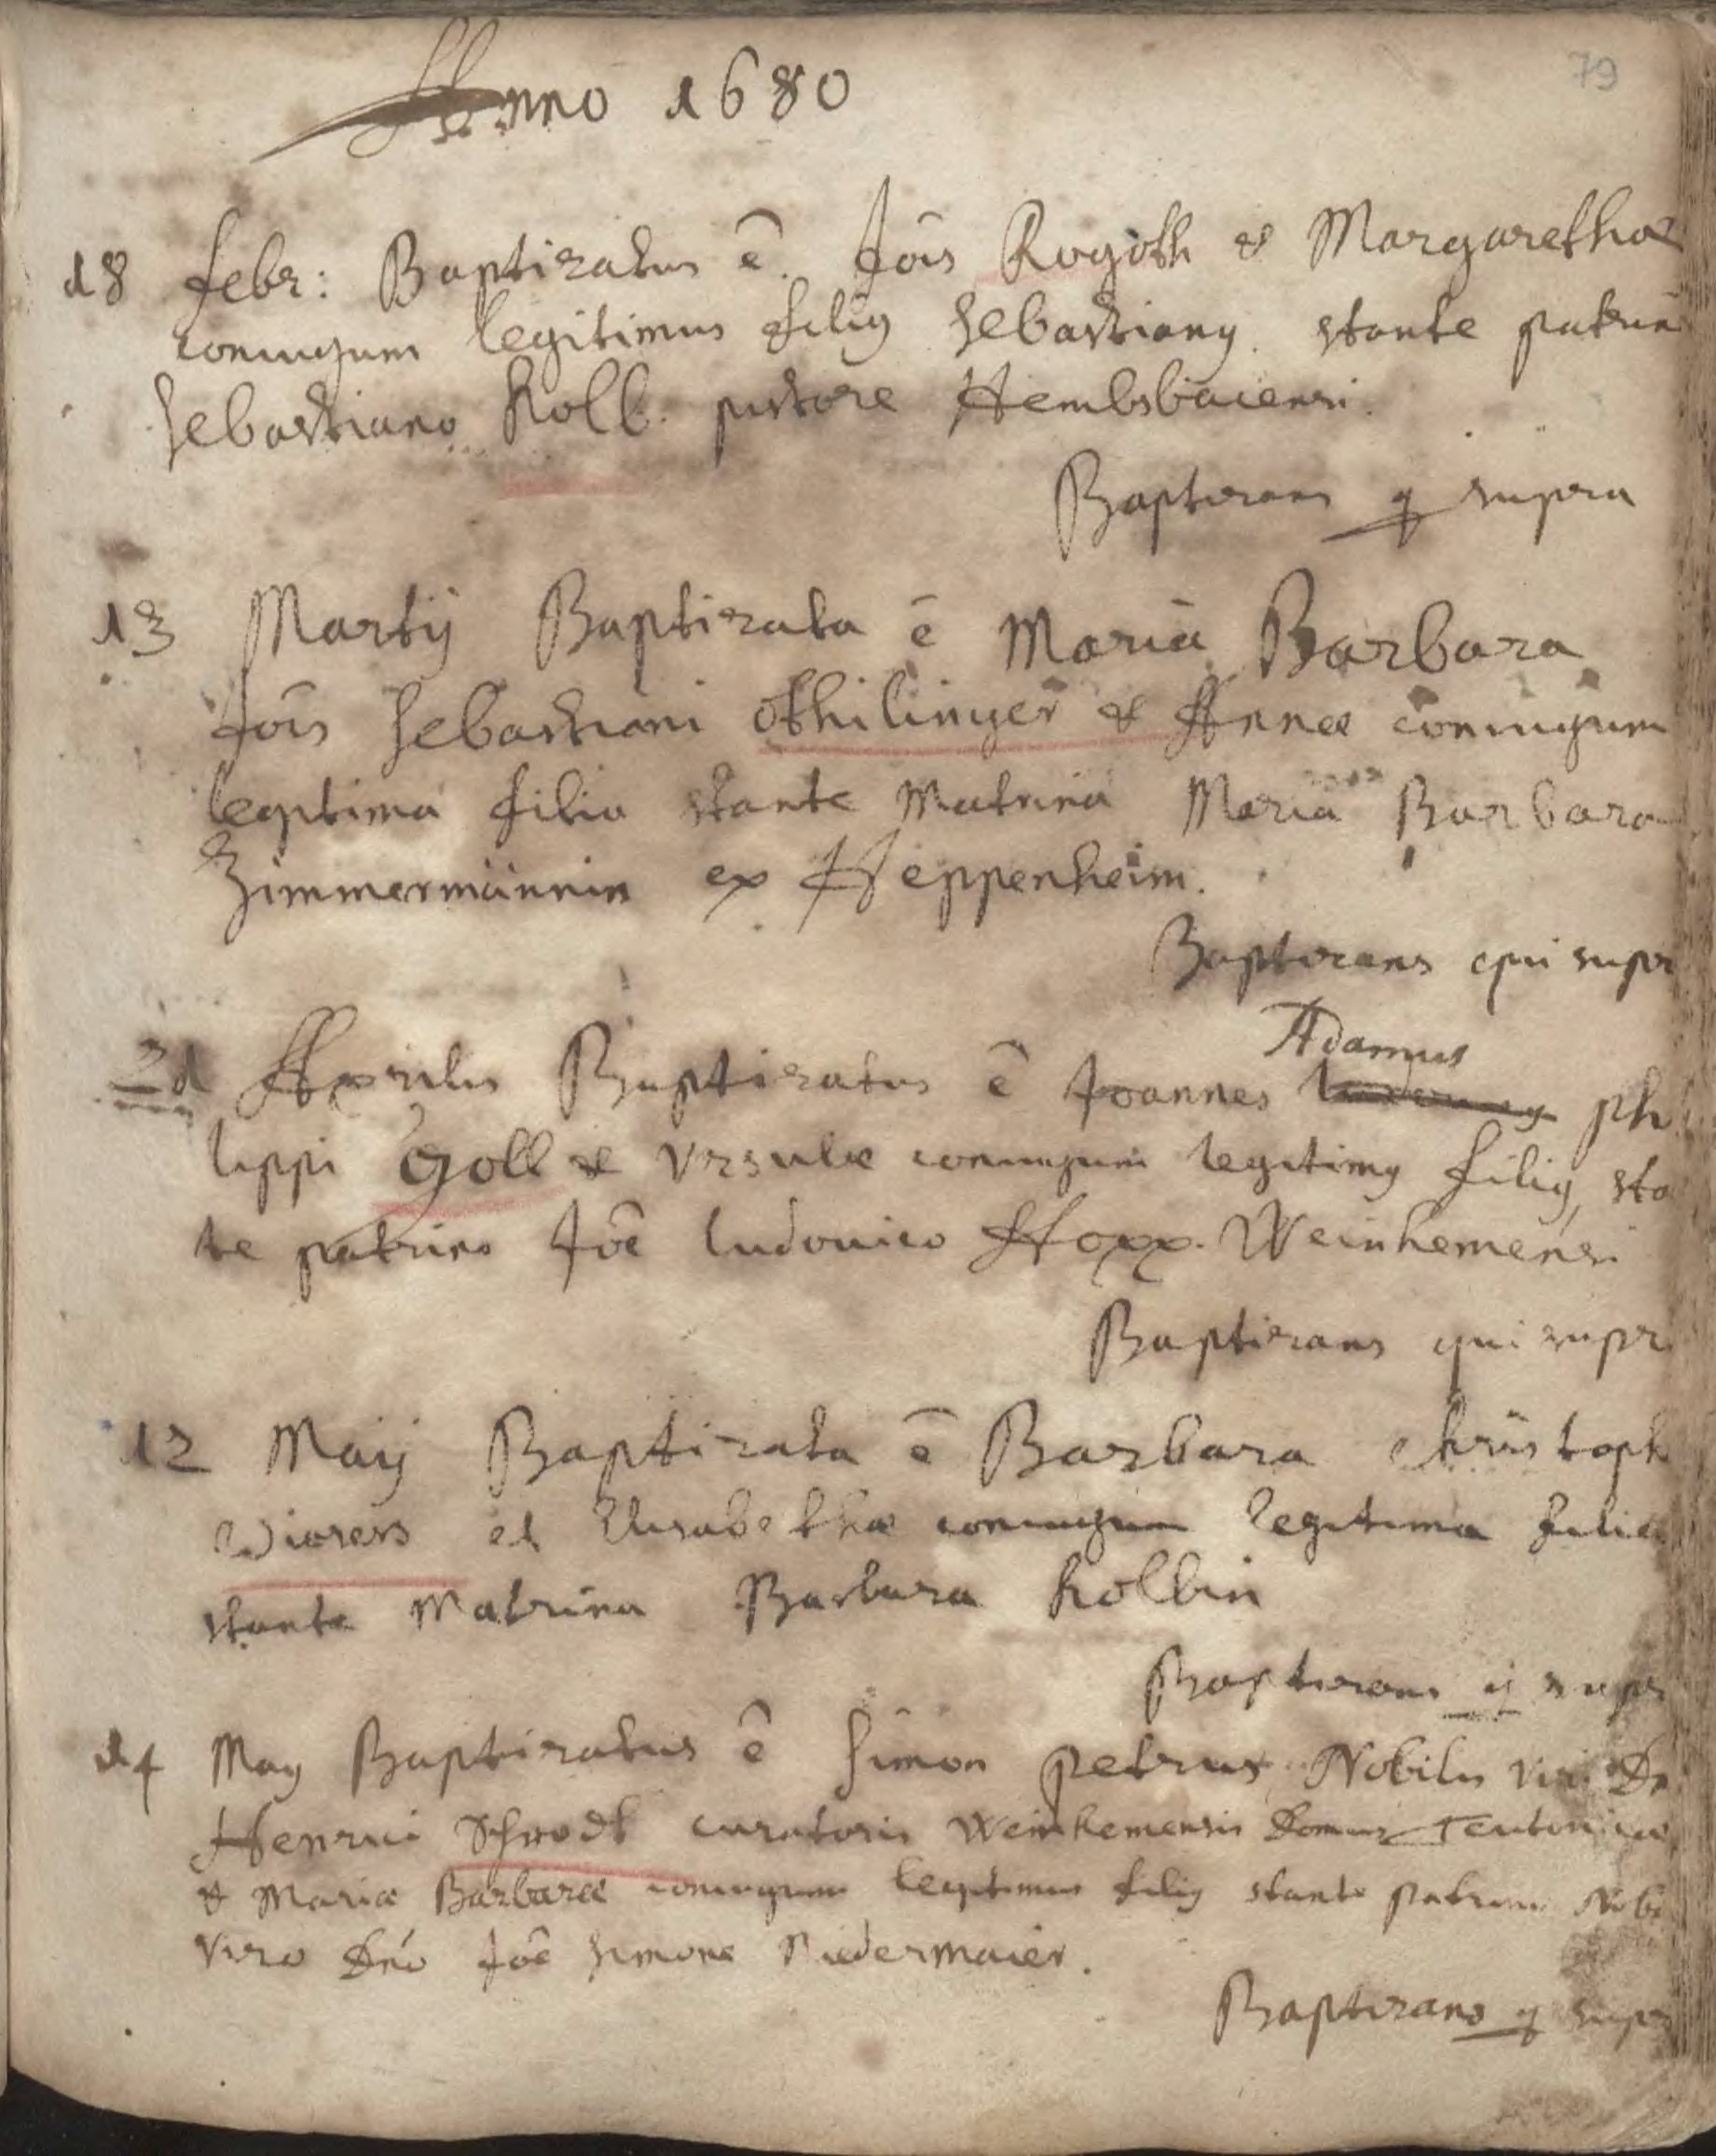 79
Anno 1680
18 febr: Baptizatus ē. Jois Rogoth & Margarethae
coniugum legitimus filiy Sebastiany. stante patrin
Sebastiano Kolb. pistore Hembsbacensi.
Baptizans q supra
13 Martij Baptizata ē Maria Barbara
Jois Sebastiani Othilinger & Annae coniugum
legitima filia stante Matrina Maria Barbara
Zimmermännin ex Heppenheim.
Baptizans qui supr
Adamus
21 Aprilis Baptizatus ē Joannes phi
lippi Goll & Vrsulae coniugum legitimy filiy, sta
te patrino Joē ludouico Hopp. Weinhemensi
Baptizans qui supr
12 Maij Baptizata ē Barbara Christoph
et Elisabethae coniugum legitima filia
stante Matrina Barbara Kolbin
Baptizans q supr
14 May Baptizatus ē Simon petrus Nobilis viri Dn
Henrici Schrodt curatoris Weinhemensis Domus Teutonicae
& Mariae Barbarae coniugum legitimus filiy stante patrino Nobi
viro Dno Joē Simone Niedermaier.
Baptizans q supr